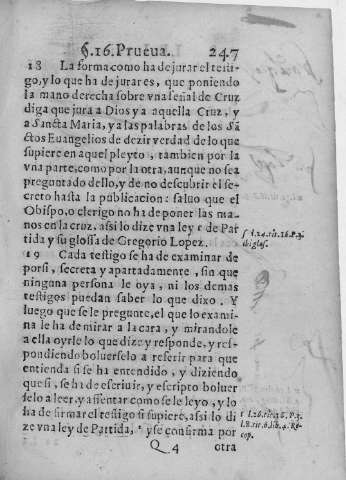 §.16. Prueua. 247
18 La forma como ha de jurar el testi-
go, y lo que ha de jurar es, que poniendo
la mano derecha sobre vna señal de Cruz
diga que jura a Dios ya aquella Cruz, y
a Sancta Maria, ya las palabras de los Sã
ctos Euangelios de dezir verdad de lo que
supiere en aquel pleyto, tambien por la
vna parte, como por la otra, aunque no sea
preguntado dello, y de no descubrir el se-
creto hasta la publicacion: saluo que el
Obispo, o clerigo no ha de poner las ma-
nos en la cruz, assi lo dize vna ley ſ de Par
tida y su glossa de Gregorio Lopez.
ſ l.24.tit.16.P.3.
ibi glos.
19 Cada testigo se ha de examinar de
porsi, secreta y apartadamente, sin que
ninguna persona le oya, ni los demas
testigos puedan saber lo que dixo. Y
luego que se le pregunte, el que lo exami-
na le ha de mirar a la cara, y mirandole
a ella oyrle lo que dize y responde, y res-
pondiendo boluerselo a referir para que
entienda si se ha entendido, y diziendo
que si, se ha de escriuir, y escripto boluer
selo a leer, y assentar como se le leyo, y lo
ha de firmar el testigo si supiere, assi lo di
ze vna ley de Partida, t y se confirma por
t l.26.tit.16.P.3.
l.8.tit.6.lib.4.Re-
cop.
Q 4 otra